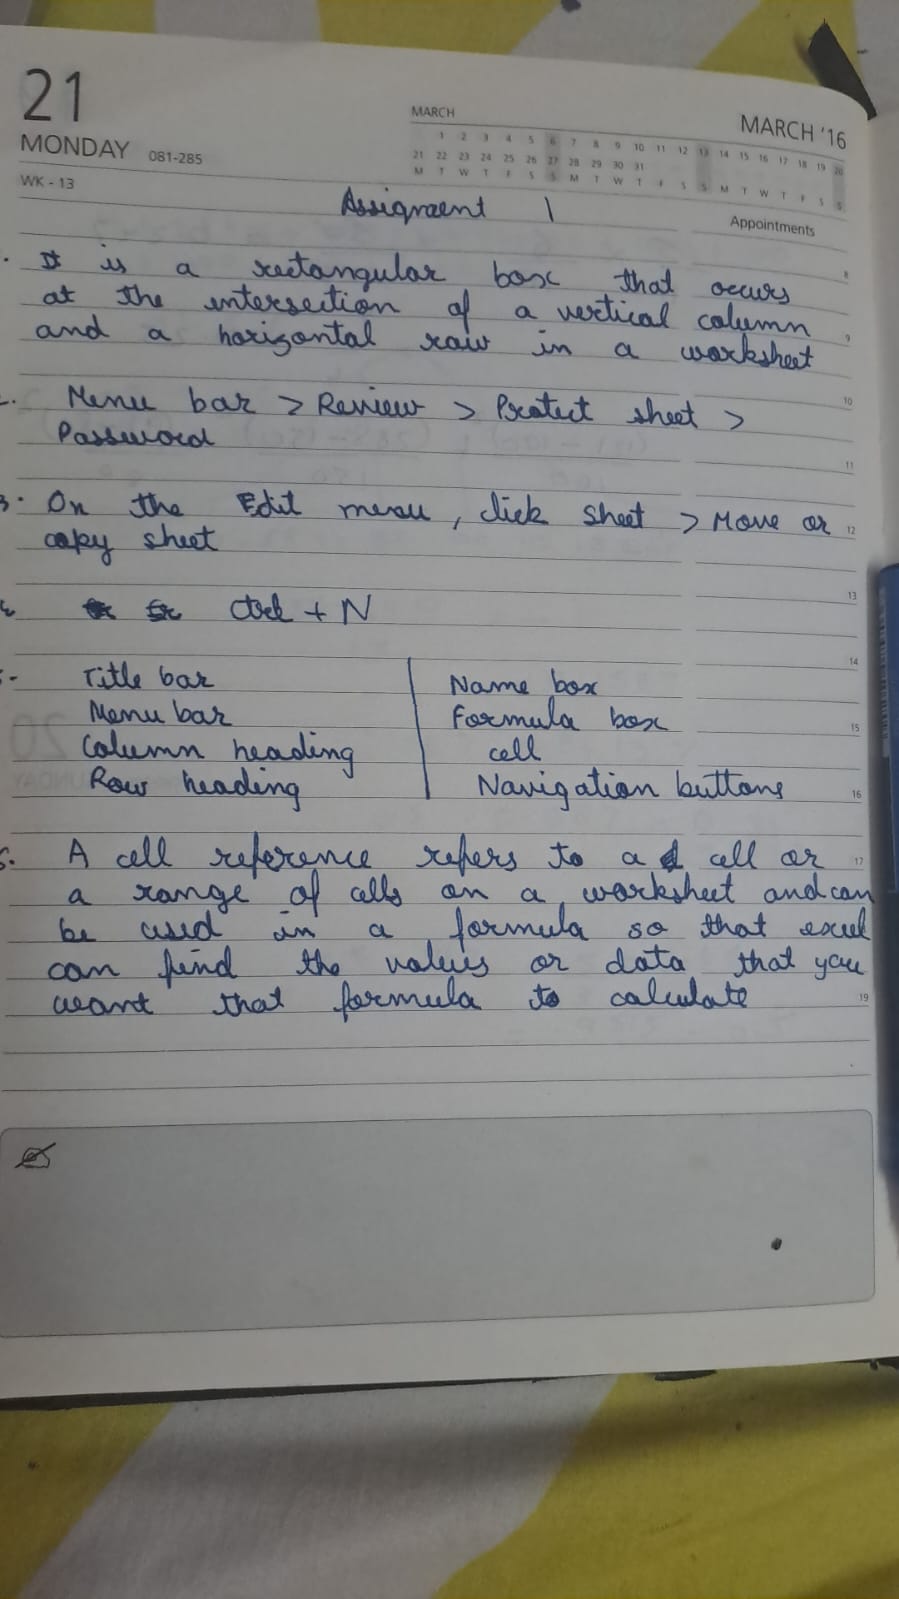 21
MONDAY 081-285
WK - 13
MARCH
MARCH '16
1 2 3 4 5 6 7 8 9 10 11 12 13 14 15 16 17 18 19 20
21 22 23 24 25 26 27 28 29 30 31
M T W T F S S M T W T F S S M T W T F S S
Assignment 1
Appointments
8
. It is a rectangular box that occurs
at the intersection of a vertical column
9
and a horizontal raw in a worksheet
10
. Menu bar > Review > Protect sheet >
Password
11
3. On the Edit menu, click sheet > Move or
12
copy sheet
13
Ctrl + N
14
Title bar | Name box
Menu bar | Formula box
15
Column heading | cell
Row heading | Navigation buttons
16
. A cell reference refers to a cell or
17
a range of cells on a worksheet and can
be used in a formula so that excel
can find the values or data that you
want that formula to calculate
19